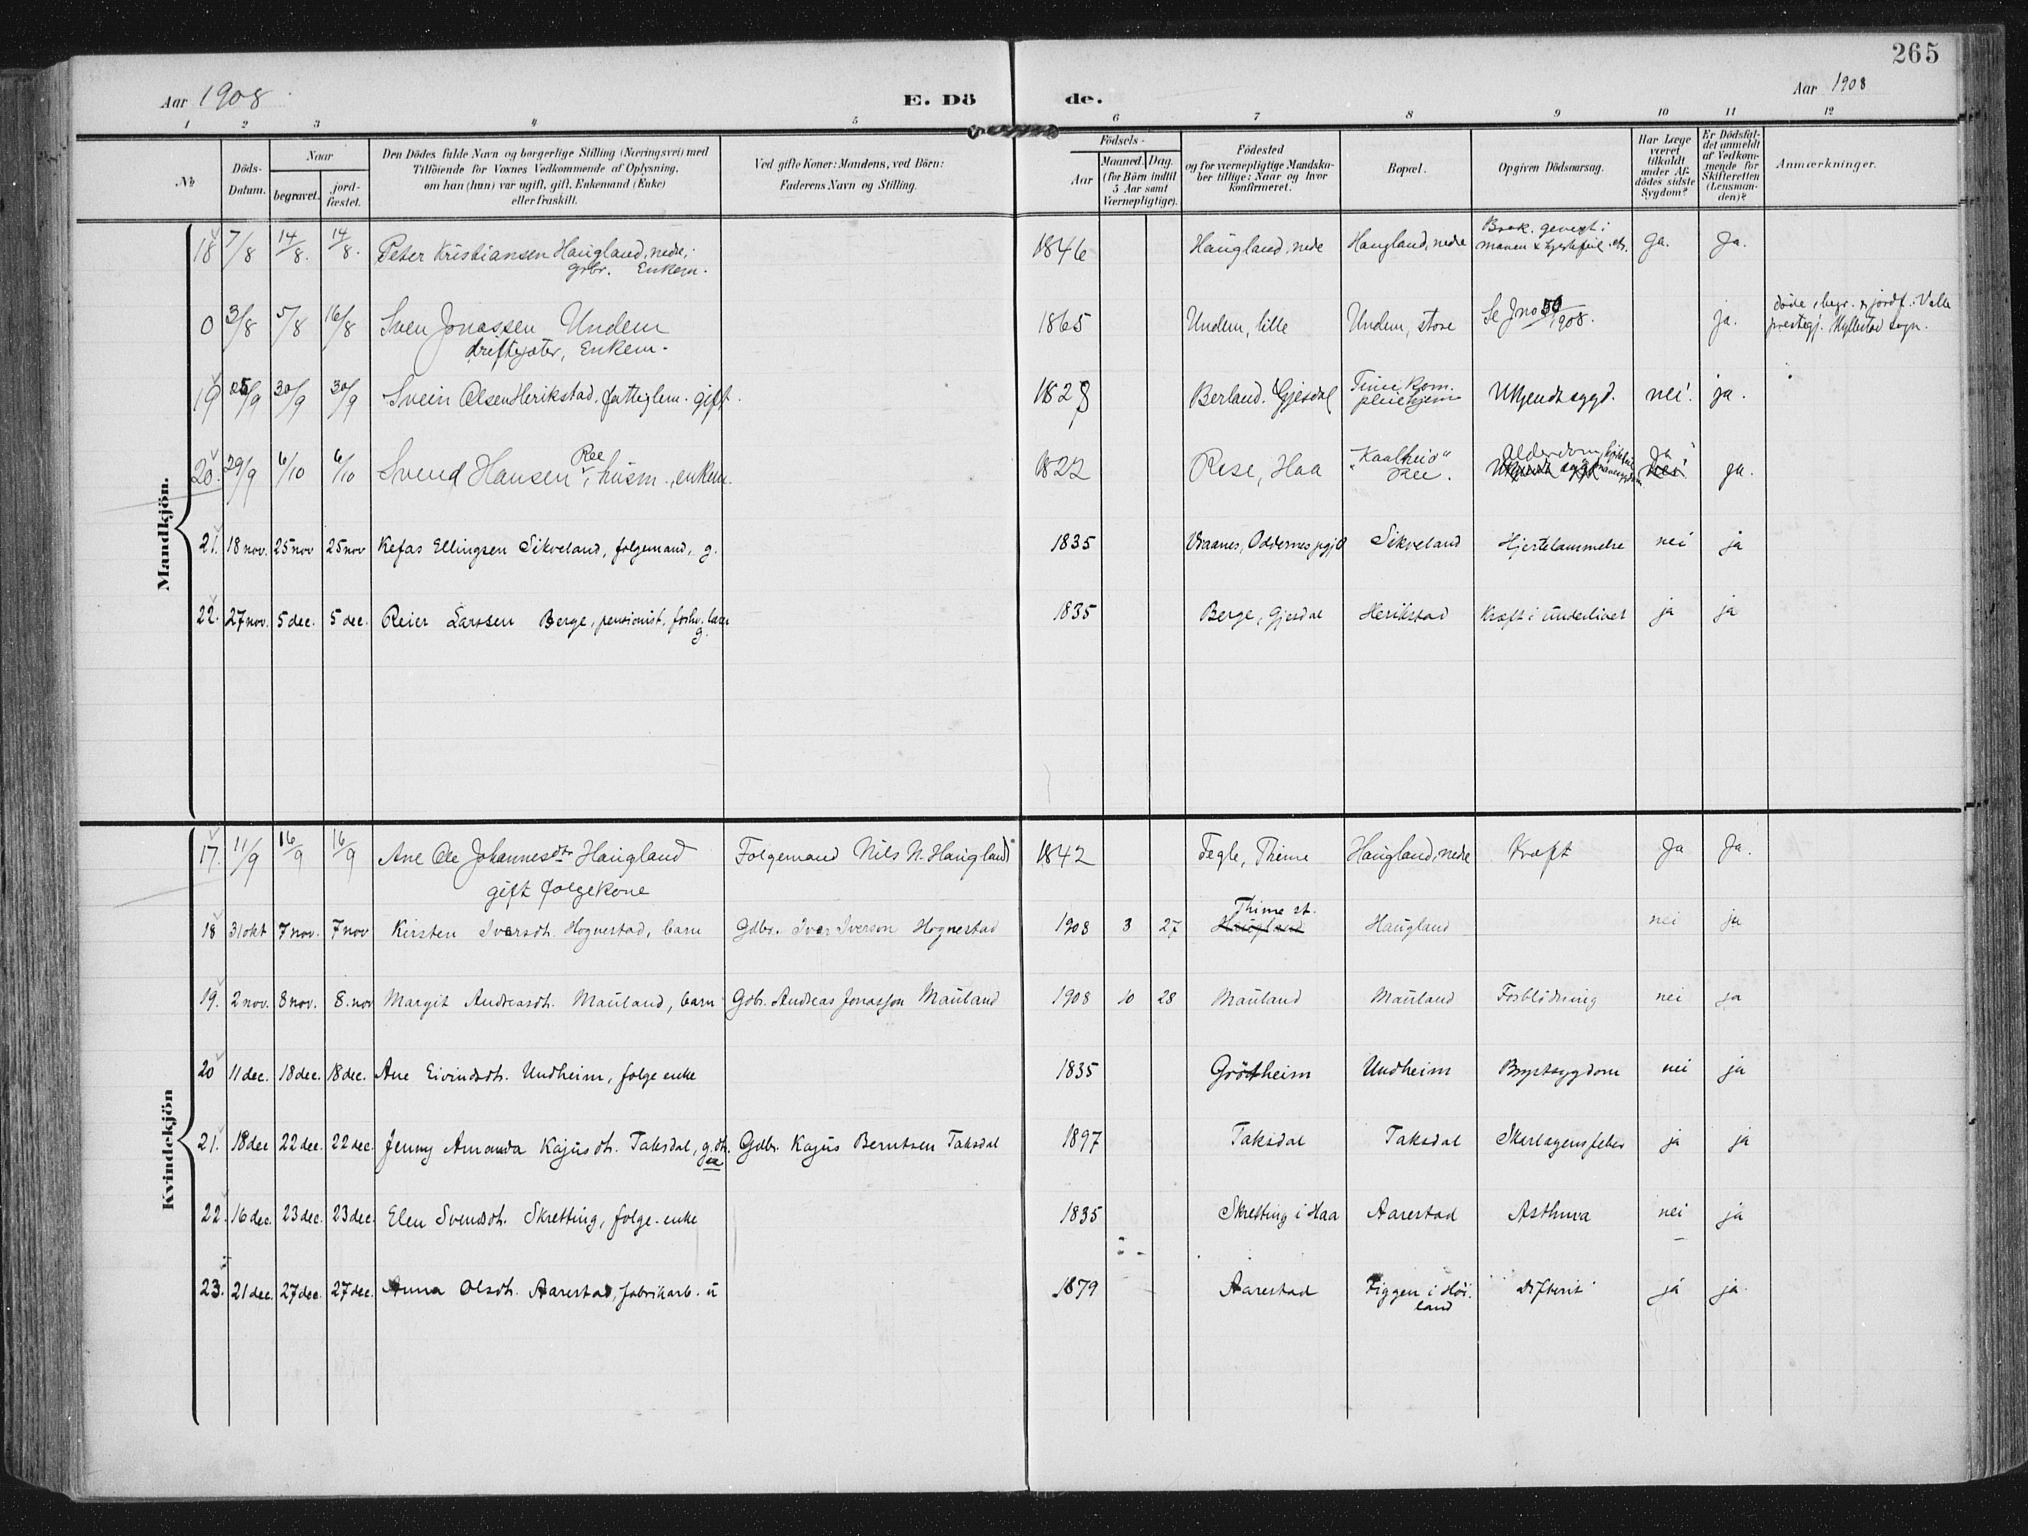 265
Aar 1908 E. Dö de. Aar 1908
1 2 3 4 5 6 7 8 9 10 11 12
No
Döds-Datum.
Naar
begravet.
jord-fæstet.
Den Dödes fulde Navn og borgerlige Stilling (Næringsvei) med
Tilföiende for Voxnes Vedkommende af Oplysning,
om han (hun) var ugift, gift, Enkemand (Enke)
eller fraskilt.
Ved gifte Koner: Mandens, ved Börn:
Faderens Navn og Stilling.
Födsels-
Aar
Maaned. Dag.
(for Börn indtil
5 Aar samt
Værnepligtige).
Födested
og for værnepligtige Mandska-
ber tillige: Naar og hvor
konfirmeret.
Bopæl.
Opgiven Dödsaarsag.
Har Læge
været
tilkaldt
under Af-
dödes sidste
Sygdom?
Er Dödsfal-
det anmeldt
af Vedkom-
mende for
Skifteretten
(Lensman-
den)?
Anmærkninger.
Mandkjön.
18 7/8 14/8. 14/8. Peter Kristiansen Haugland, nedre; 1846 Haugland, nedre Haugland, nedre Ja. Ja.
grbr. Enkem.
0 3/8 5/8 16/8 Sven Jonassen Undem 1865 Undem, lille Undem, store Se Jno 50/1908. ja. döde, begr. & jordf. i Valle
driftgjæter, Enkem. prestegj. Hyllestad sogn.
19 25/9 30/9 30/9 Svein Olsen Herikstad. fatteglem. gift. 1828 Berland. Gjesdal Time kom. pleiehjem Ukjendt sygd. nei. ja.
20. 29/9 6/10 6/10 Svend Hansen Ree, husm., enkem. 1822 Rese, Haa "Kaalheio" Ree. alderdom, Ja ja.
21. 18 nov. 25 nov 25 nov Kefas Ellingsen Sikveland, folgemand, g. 1835 Vraanes, Oddernes pgjld Sikveland Hjertelammelse nei ja
22. 27 nov. 5 dec. 5 dec. Reier Larssen Berge, pensionist, forhv. lærer g. 1835 Berge, Gjesdal Herikstad Kræft i underlivet ja ja
Kvindekjön
17. 11/9 16/9 16/9 Ane Ole Johannesdtr Haugland Folgemand Nils N. Haugland 1842 Tegle, Thime Haugland, nedre Kræft Ja Ja.
gift folgekone
18 31 okt 7 nov. 7 nov Kirsten Iversdt. Hognestad, barn Gdbr. Iver Iverson Hognestad 1908 3 27 Thime st. Haugland Haugland nei ja
19. 2 nov. 8 nov. 8. nov Margit Andreasdt. Mauland, barn Gdbr. Andreas Jonasson Mauland 1908 10 28 Mauland Mauland Forblödning nei ja
20 11 dec. 18 dec. 18 dec. Ane Eivindsdt. Undheim, folge enke 1835 Grödtheim Undheim Brystsygdom nei ja
21. 18 dec 22 dec. 22 dec. Jenny Amanda Kajusdt. Taksdal, g.dt. Gdbr. Kajus Berntsen Taksdal 1897 Taksdal Taksdal Skarlagensfeber ja ja
22. 16 dec. 23 dec. 23 dec. Elen Svendsdt. Skretting, folge-enke 1835 Skretting i Haa Aarestad Asthma nei ja
23. 21 dec. 27 dec. 27 dec. Anna Olsdt. Aarestad, fabrikarb. u 1879 Aarestad Figgen i Höiland Difterit ja ja.